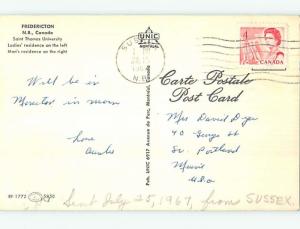 FREDERICTON
N.B., Canada
Saint Thomas University
Ladies' residence on the left
Men's residence on the right
UNIC
MONTREAL
SUSSEX
N.B.
4
CANADA
Carte Postale
Post Card
Will be in
Moncton in morn
love
Mrs David Dyer
40 George St
So. Portland
Maine
USA
Pub. UNIC 6917 Avenue du Parc, Montreal, Canada
Sent July 25, 1967, from SUSSEX.